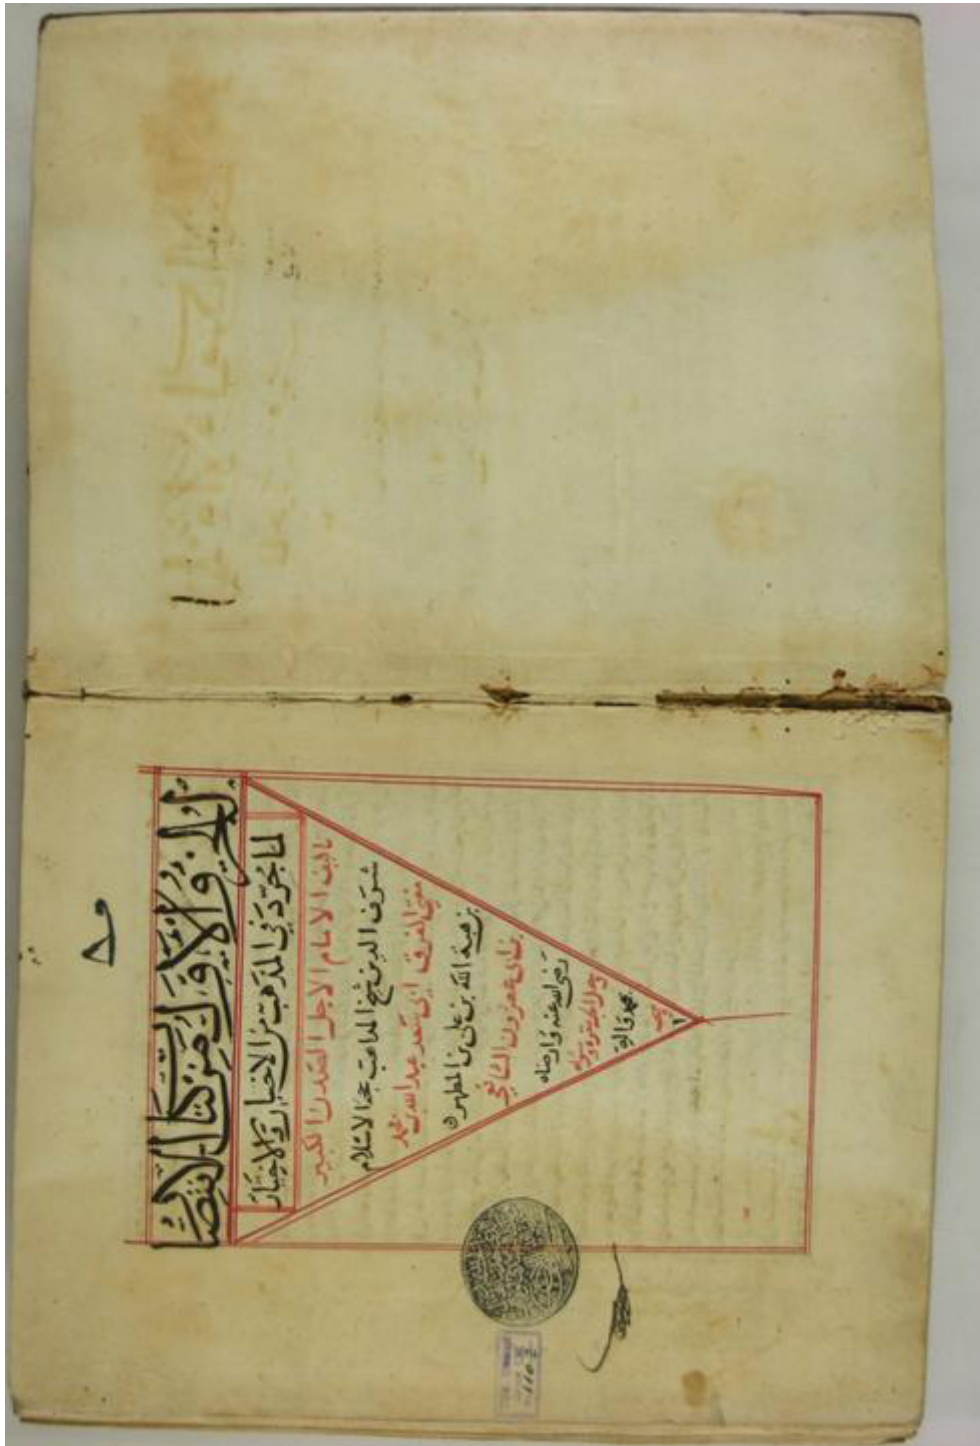 الجزء الاول من كتاب الانتصار
لما جرد في المذهب من الاخبار والاختيار
تاليف الامام الاجل الصدر الكبير
شرف الدين شيخ المذاهب مجد الاسلام
مفتي الفرق ابي سعد عبد الله بن محمد
بن هبة الله بن علي بن المطهر
بن ابي عصرون الشافعي
رضي الله عنه وارضاه
وجعل الجنة
محمد واله